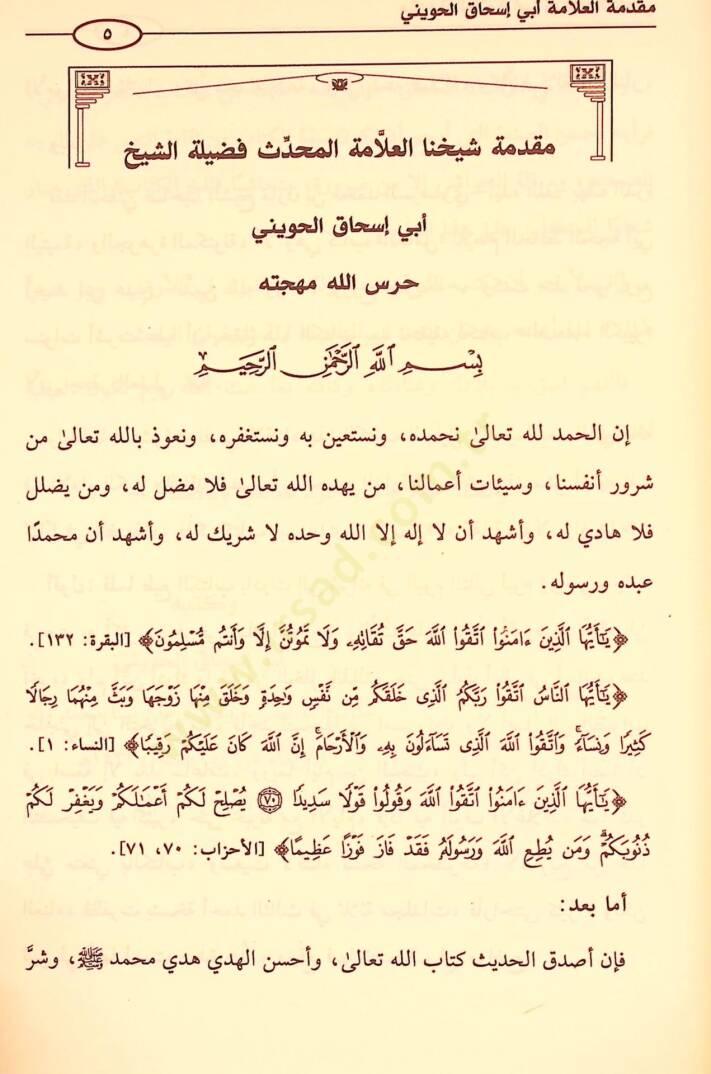 مقدمة العلامة أبي إسحاق الحويني
٥
مقدمة شيخنا العلَّامة المحدِّث فضيلة الشيخ
أبي إسحاق الحويني
حرس الله مهجته
بِسْمِ ٱللَّهِ ٱلرَّحْمَٰنِ ٱلرَّحِيمِ
إن الحمد لله تعالىٰ نحمده، ونستعين به ونستغفره، ونعوذ بالله تعالىٰ من
شرور أنفسنا، وسيئات أعمالنا، من يهده الله تعالىٰ فلا مضل له، ومن يضلل
فلا هادي له، وأشهد أن لا إله إلا الله وحده لا شريك له، وأشهد أن محمدًا
عبده ورسوله.
﴿يَٰٓأَيُّهَا ٱلَّذِينَ ءَامَنُوا۟ ٱتَّقُوا۟ ٱللَّهَ حَقَّ تُقَاتِهِۦ وَلَا تَمُوتُنَّ إِلَّا وَأَنتُم مُّسْلِمُونَ﴾ [البقرة: ١٣٢].
﴿يَٰٓأَيُّهَا ٱلنَّاسُ ٱتَّقُوا۟ رَبَّكُمُ ٱلَّذِى خَلَقَكُم مِّن نَّفْسٍ وَٰحِدَةٍ وَخَلَقَ مِنْهَا زَوْجَهَا وَبَثَّ مِنْهُمَا رِجَالًا
كَثِيرًا وَنِسَآءً ۚ وَٱتَّقُوا۟ ٱللَّهَ ٱلَّذِى تَسَآءَلُونَ بِهِۦ وَٱلْأَرْحَامَ ۚ إِنَّ ٱللَّهَ كَانَ عَلَيْكُمْ رَقِيبًا﴾ [النساء: ١].
﴿يَٰٓأَيُّهَا ٱلَّذِينَ ءَامَنُوا۟ ٱتَّقُوا۟ ٱللَّهَ وَقُولُوا۟ قَوْلًا سَدِيدًا ۝٧٠ يُصْلِحْ لَكُمْ أَعْمَٰلَكُمْ وَيَغْفِرْ لَكُمْ
ذُنُوبَكُمْ ۗ وَمَن يُطِعِ ٱللَّهَ وَرَسُولَهُۥ فَقَدْ فَازَ فَوْزًا عَظِيمًا﴾ [الأحزاب: ٧٠، ٧١].
أما بعد:
فإن أصدق الحديث كتاب الله تعالىٰ، وأحسن الهدي هدي محمد ﷺ، وشرَّ